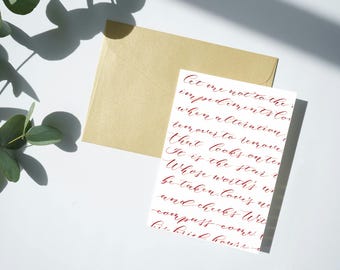 let me not to the
impediments Lo
when alteration
remover to remove
that looks on te
It is the star
Whose worth's un
be taken love's no
and cheeks Wit
compass come
his brief hours a